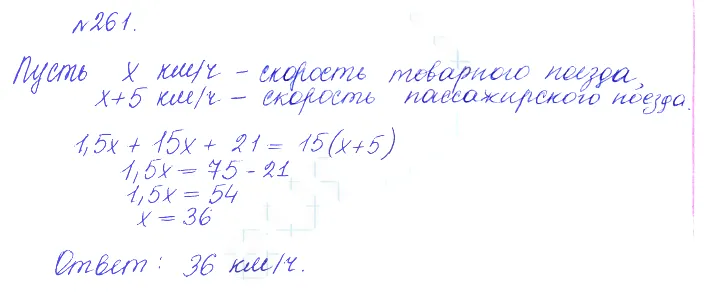 №261.
Пусть x км/ч – скорость товарного поезда,
x+5 км/ч – скорость пассажирского поезда.
1,5x + 15x + 21 = 15(x+5)
1,5x = 75 - 21
1,5x = 54
x = 36
Ответ: 36 км/ч.